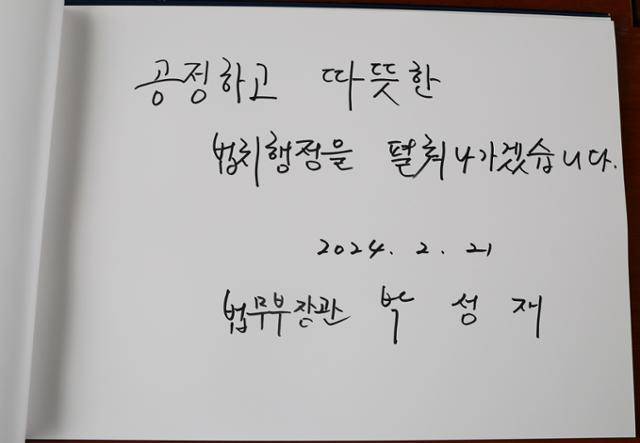 공정하고 따뜻한
법치행정을 펼쳐나가겠습니다.
2024. 2. 21
법무부장관 박 성 재